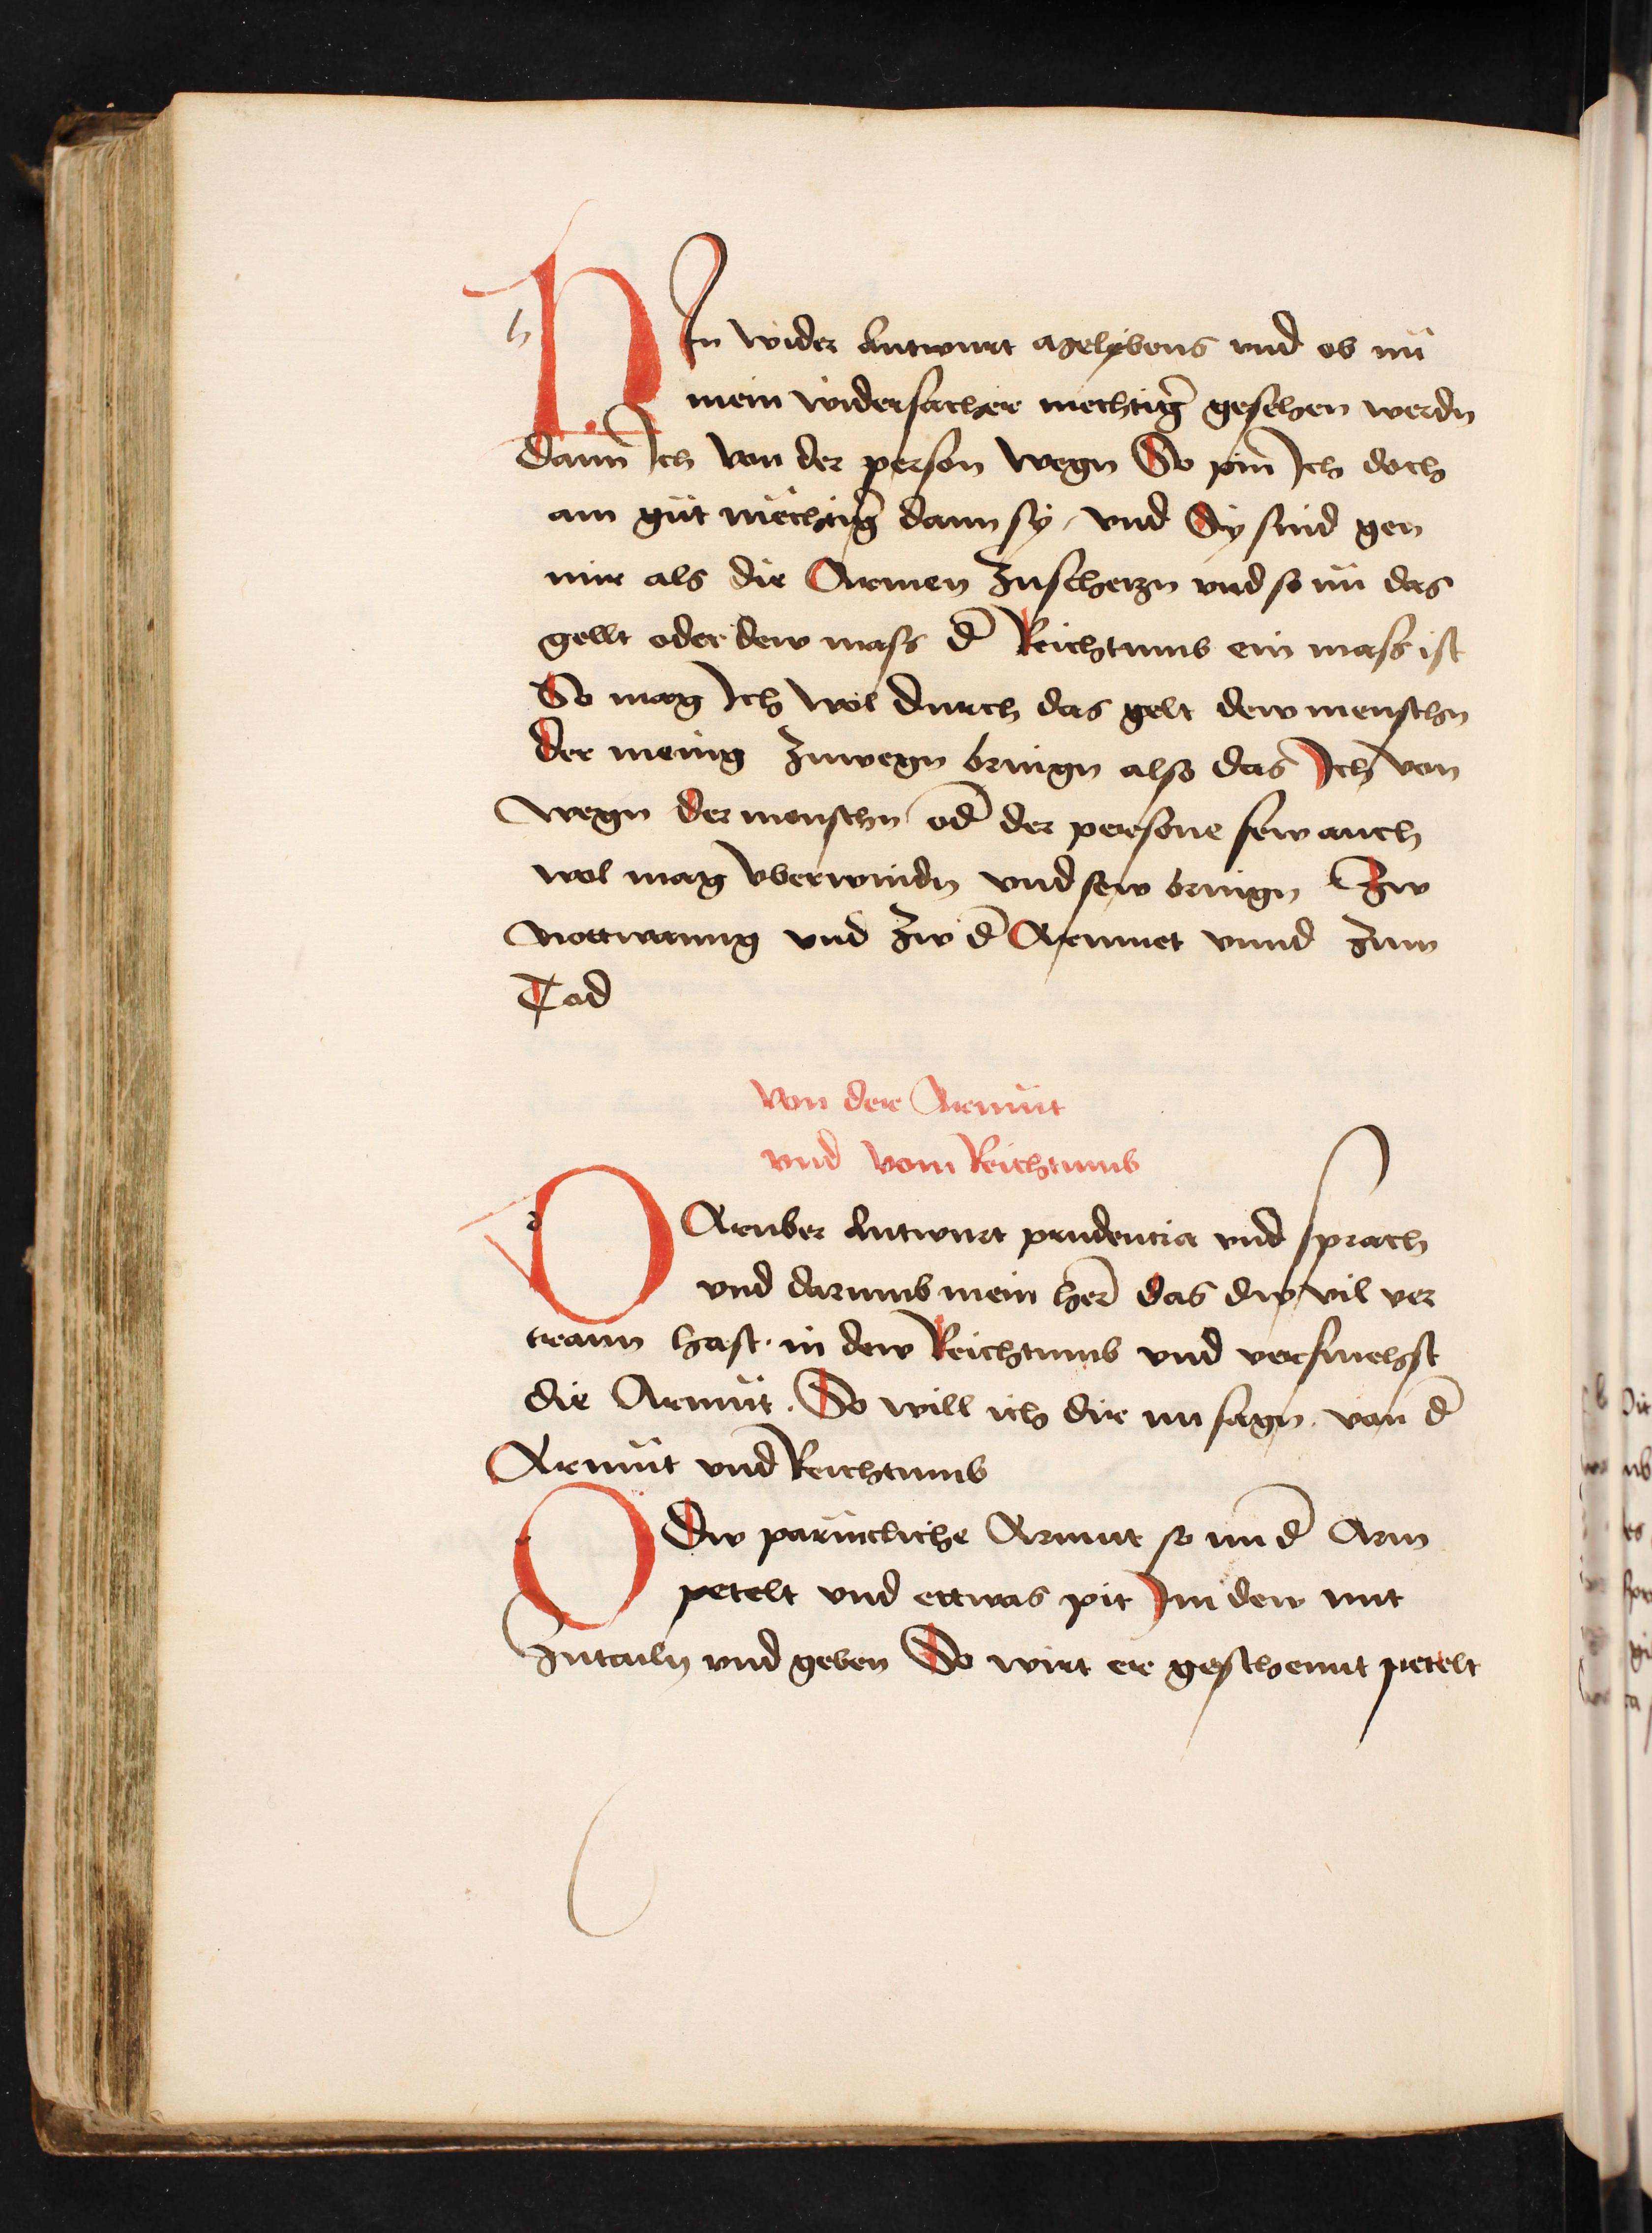 HIn wider Antwurt Melybeus vnd ob nů
mein widersacher mechtig̃ gesehen werdn
dann Ich von der person wegn So pin Ich doch
am gůt mechtig̃ dann sy / vnd Sy sind gen
mir als die Armen Zuschetzn vnd so nů das
gellt oder dew mass d̃ Reichtumb ein mass ist
So mag Ich wol durch das gelt dew menschn
der menig zuwegn bringn also das Ich von
wegn der menschn od̃ der persone sew auch
wol mag vberwindn vnd sew bringn Zw
nottwanng vnd zw d̃ Armuet vnnd zum
Tod
Von der Armůt
vnd vom Reichtumb
DArvber Antwurt prudencia vnd sprach
vnd darumb mein her̃ das dw vil ver
trawn hast · in dew Reichtumb vnd versmehst
die Armůt · So will ich dir nu sagn · von d̃
Armůt vnd Reichtumb
O Dw parmcliche Armut so nu d̃ Arm
petelt vnd ettwas pit Im dew mit
Zutailn vnd geben So wirt er geschennt petelt